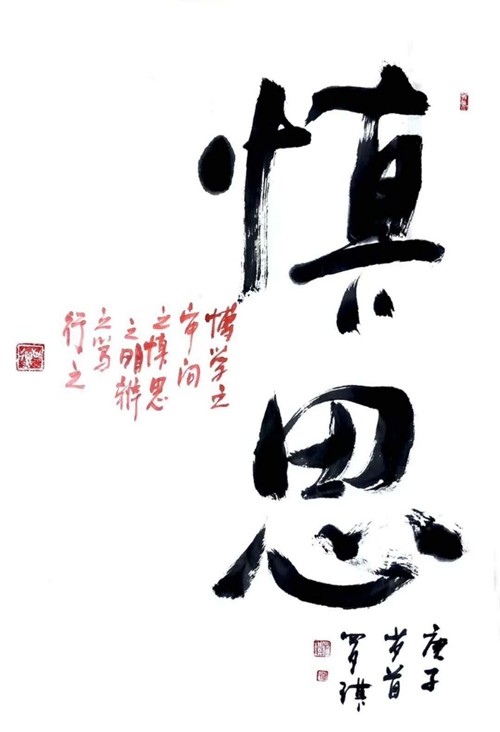 慎思
博学之
审问
之慎思
之明辨
之笃
行之
庚子
岁首
罗琪